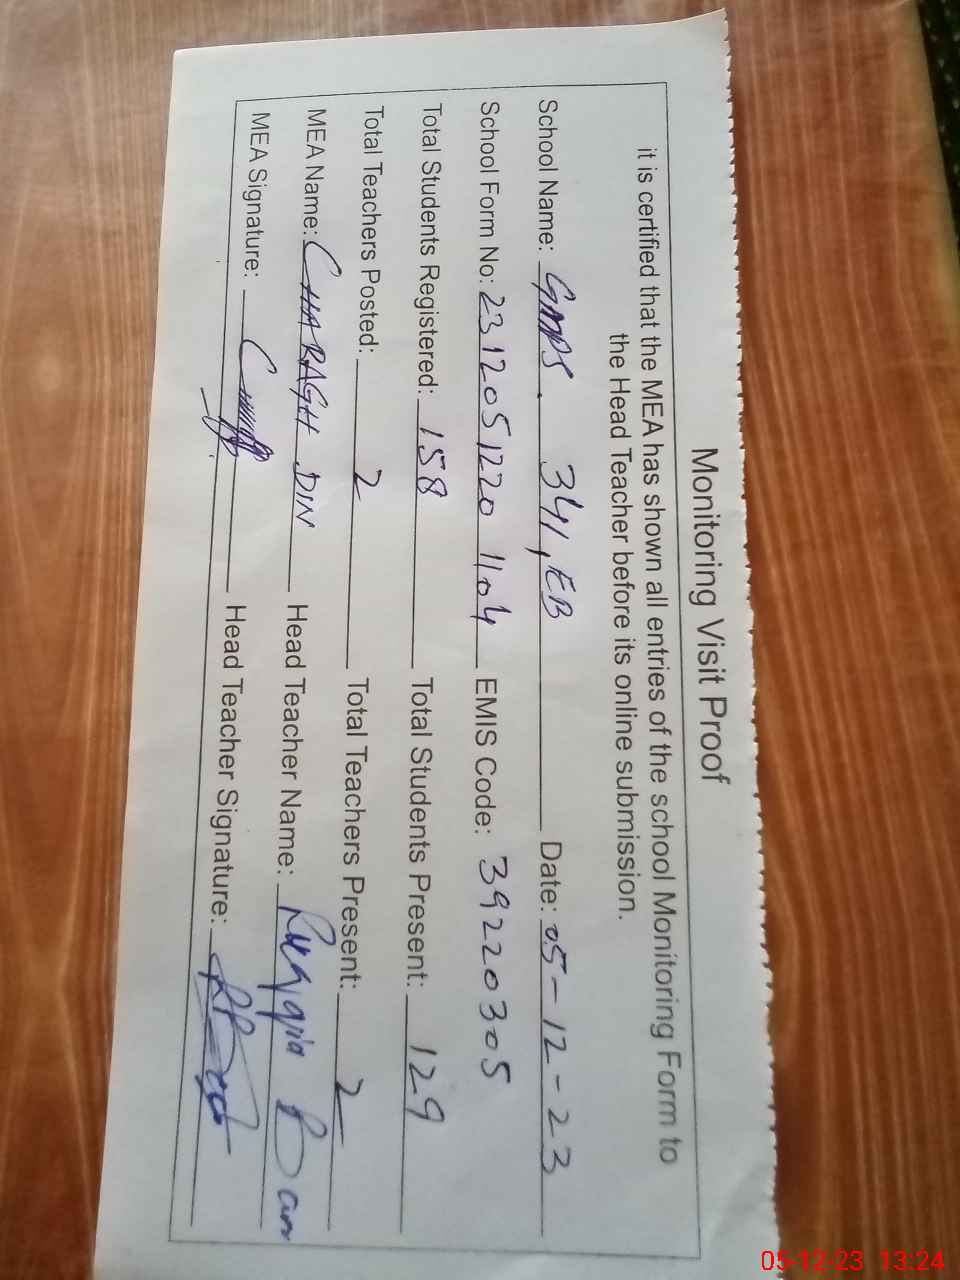 Monitoring Visit Proof
it is certified that the MEA has shown all entries of the school Monitoring Form to
the Head Teacher before its online submission.
School Name: GMPS. 341, EB Date: 05-12-23
School Form No: 23120512201104 EMIS Code: 39220305
Total Students Registered: 158 Total Students Present: 129
Total Teachers Posted: 2 Total Teachers Present: 2
MEA Name: CHARAGH DIN Head Teacher Name: Ruqqia
MEA Signature: Head Teacher Signature:
05-12-23 13:24